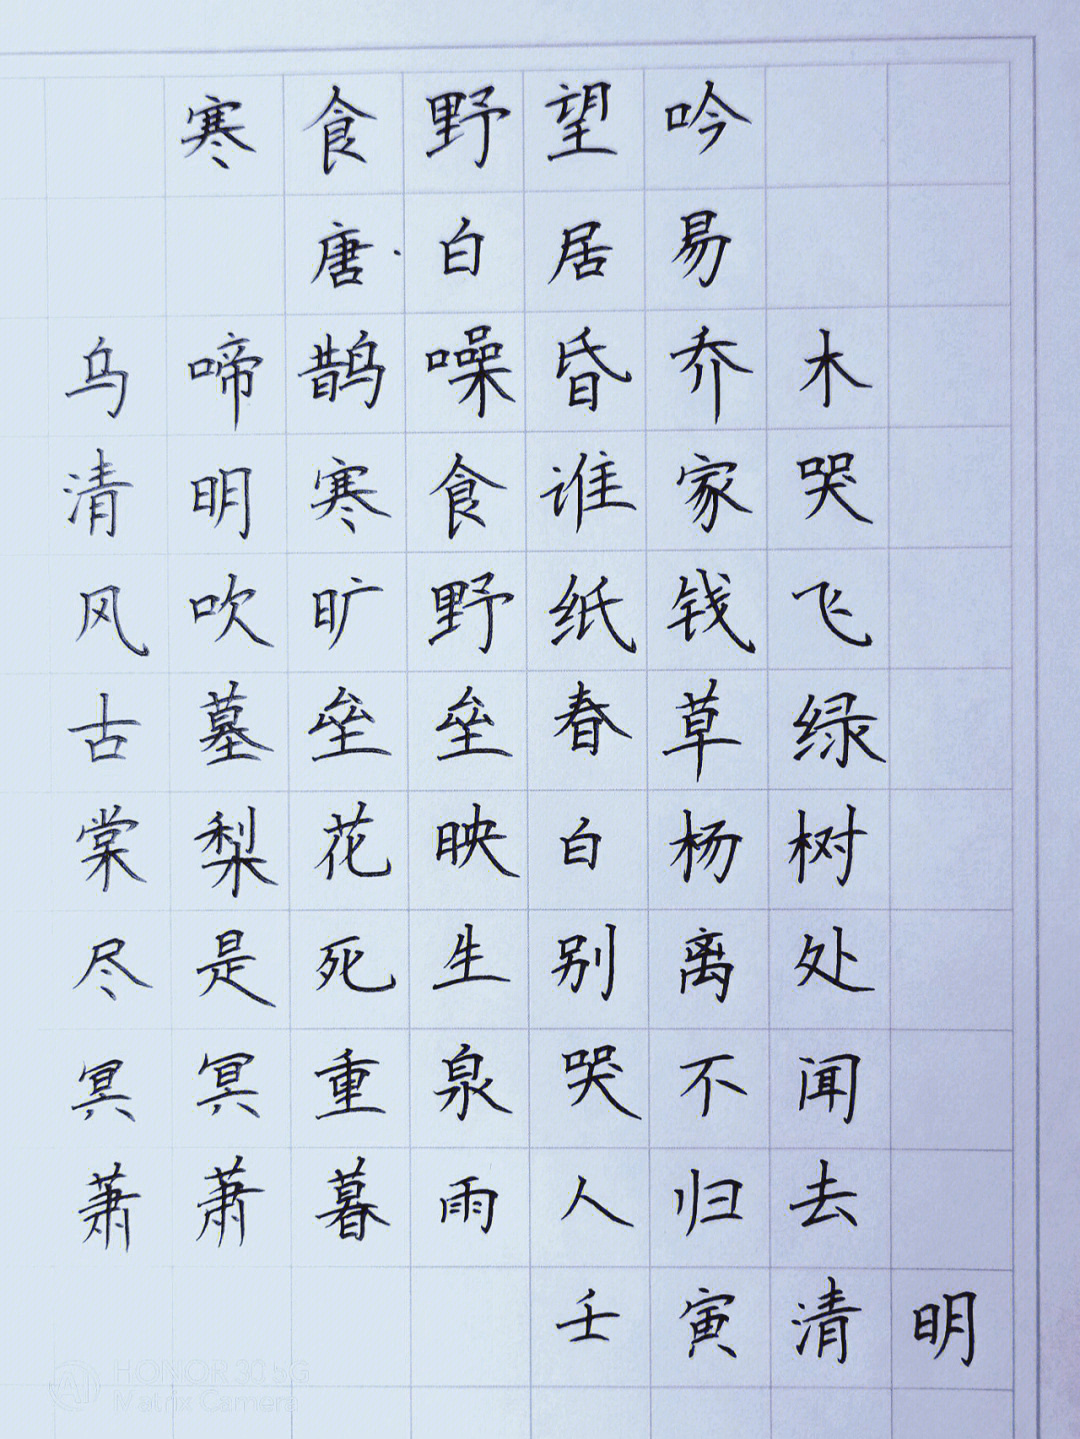 寒食野望吟
唐·白居易
乌啼鹊噪昏乔木
清明寒食谁家哭
风吹旷野纸钱飞
古墓垒垒春草绿
棠梨花映白杨树
尽是死生别离处
冥冥重泉哭不闻
萧萧暮雨人归去
壬寅清明
HONOR 30 5G
Matrix Camera